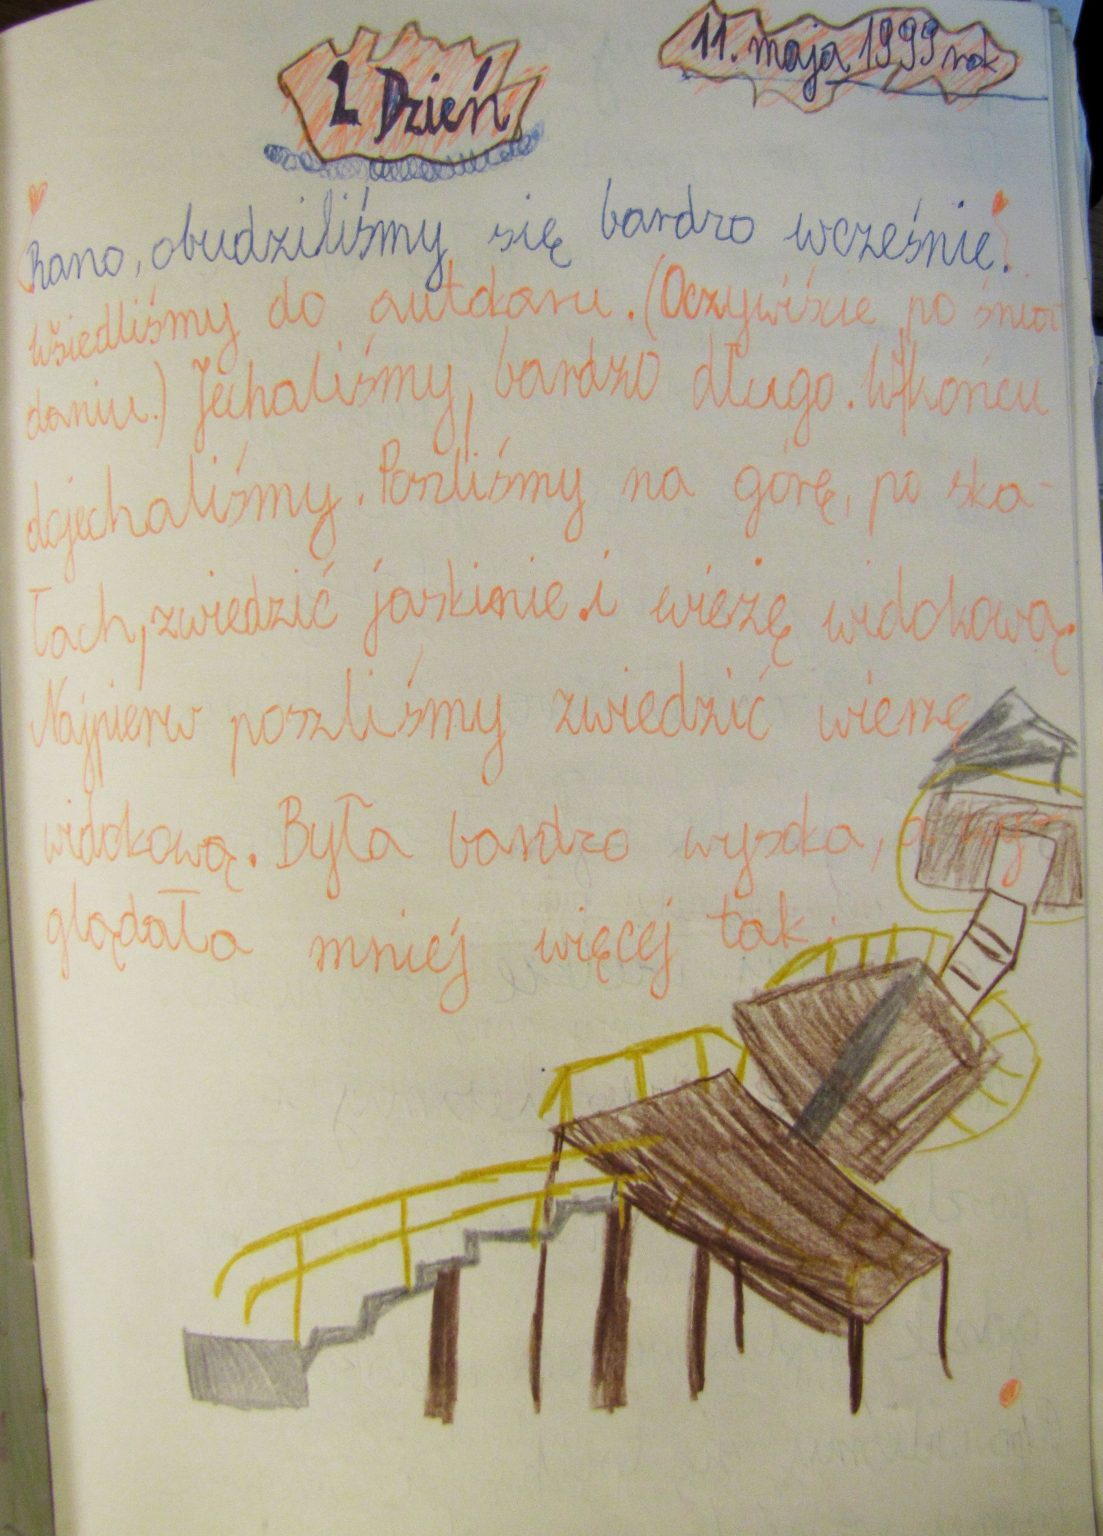 2 Dzień
11. maja 1999 rok
Rano, obudziliśmy się bardzo wcześnie!
Wsiedliśmy do autokaru. (Oczywiście po śnia
daniu.) Jechaliśmy, bardzo długo. Wkońcu
dojechaliśmy. Poszliśmy na górę, po ska-
łach, zwiedzić jaskinie i wieżę widokową.
Najpierw poszliśmy zwiedzić wierzę
widokową. Była bardzo wysoka, a wy
glądała mniej więcej tak: